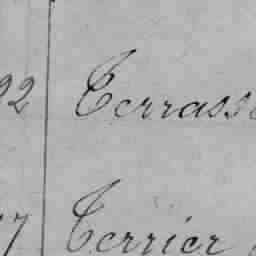 92 Terrass
7 Terrier